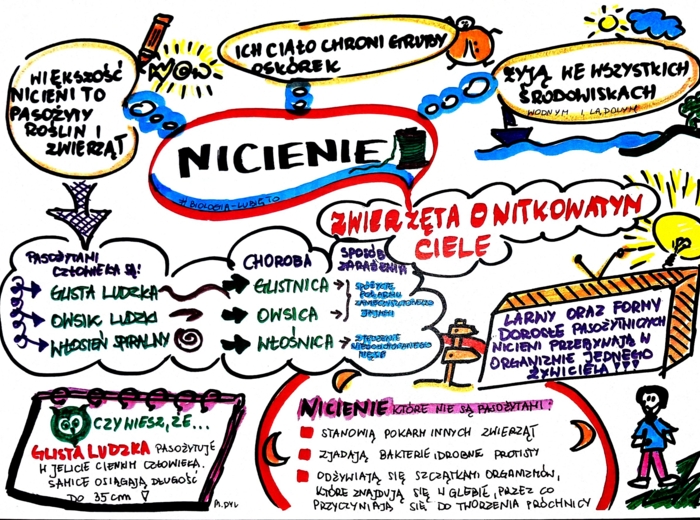 WIĘKSZOŚĆ
NICIENI TO
PASOŻYTY
ROŚLIN I
ZWIERZĄT
WOW
ICH CIAŁO CHRONI GRUBY
OSKÓREK
ŻYJĄ WE WSZYSTKICH
ŚRODOWISKACH
WODNYM I LĄDOWYM
NICIENIE
# BIOLOGIA-LUBIĘ TO
ZWIERZĘTA O NITKOWATYM
CIELE
PASOŻYTAMI
CZŁOWIEKA SĄ:
GLISTA LUDZKA
OWSIK LUDZKI
WŁOSIEŃ SPIRALNY
CHOROBA
GLISTNICA
OWSICA
WŁOŚNICA
SPOSÓB
ZARAŻENIA
SPOŻYCIE
POKARMU
ZANIECZYSZCZONEGO
JAJAMI
ZJEDZENIE
NIEDOGOTOWANEGO
MIĘSA
LARWY ORAZ FORMY
DOROSŁE PASOŻYTNICZYCH
NICIENI PRZEBYWAJĄ W
ORGANIZMIE JEDNEGO
ŻYWICIELA !!!
CZY WIESZ, ŻE...
GLISTA LUDZKA PASOŻYTUJE
W JELICIE CIENKIM CZŁOWIEKA.
SAMICE OSIĄGAJĄ DŁUGOŚĆ
DO 35cm !
NICIENIE KTÓRE NIE SĄ PASOŻYTAMI:
STANOWIĄ POKARM INNYCH ZWIERZĄT
ZJADAJĄ BAKTERIE I DROBNE PROTISTY
ODŻYWIAJĄ SIĘ SZCZĄTKAMI ORGANIZMÓW,
KTÓRE ZNAJDUJĄ SIĘ W GLEBIE, PRZEZ CO
PRZYCZYNIAJĄ SIĘ DO TWORZENIA PRÓCHNICY